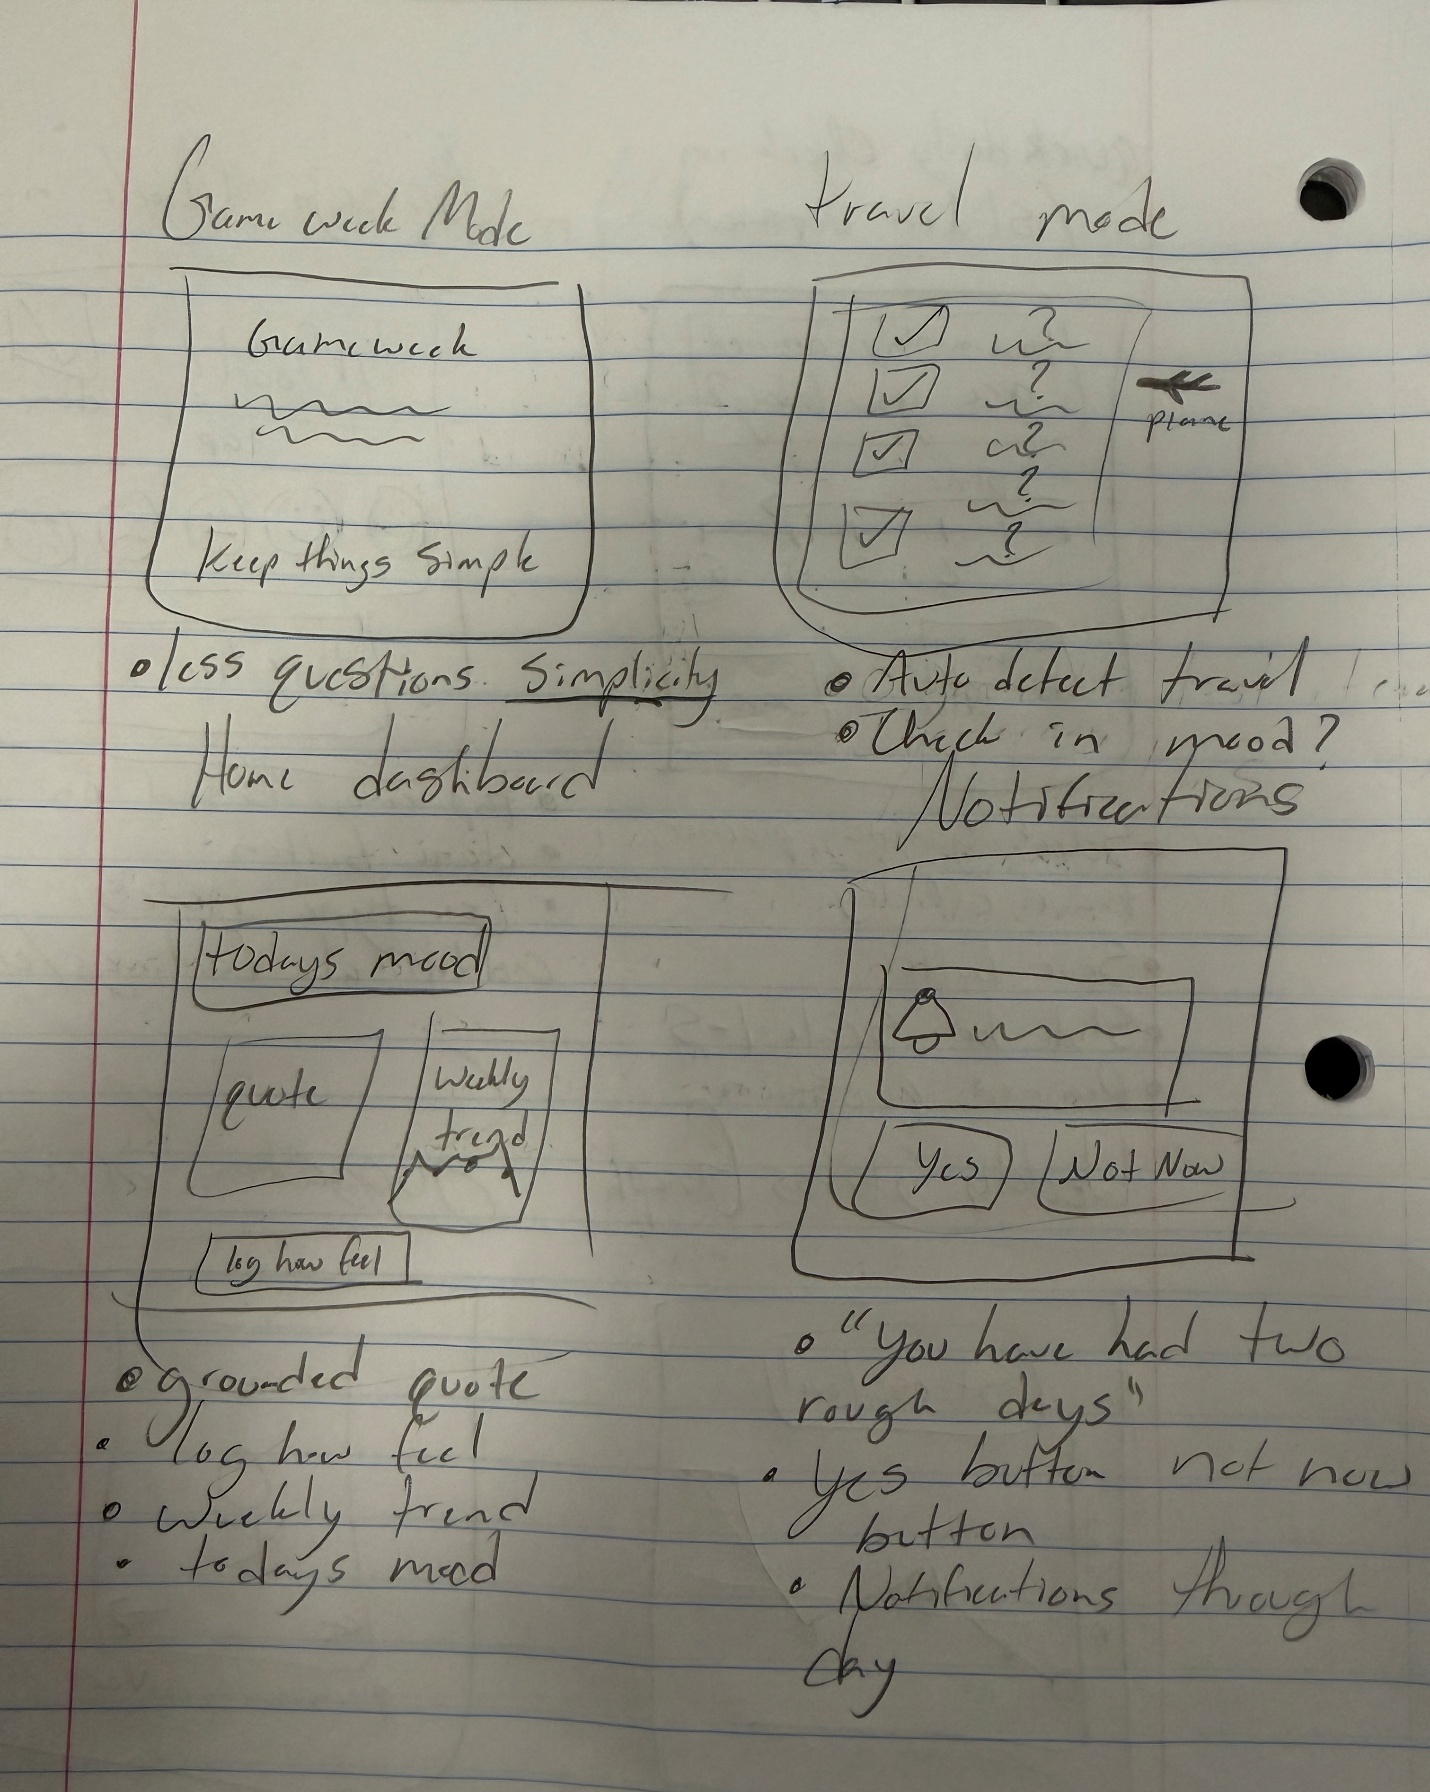 Game week Mode
Gameweek
Keep things simple
• less questions. Simplicity
travel mode
?
?
?
?
?
plane
• Auto detect travel
• Check in mood?
Home dashboard
todays mood
quote
weekly
trend
log how feel
• grounded quote
• log how feel
• weekly trend
• todays mood
Notifications
Yes
Not Now
• "You have had two
rough days"
• Yes button not now
button
• Notifications through
day